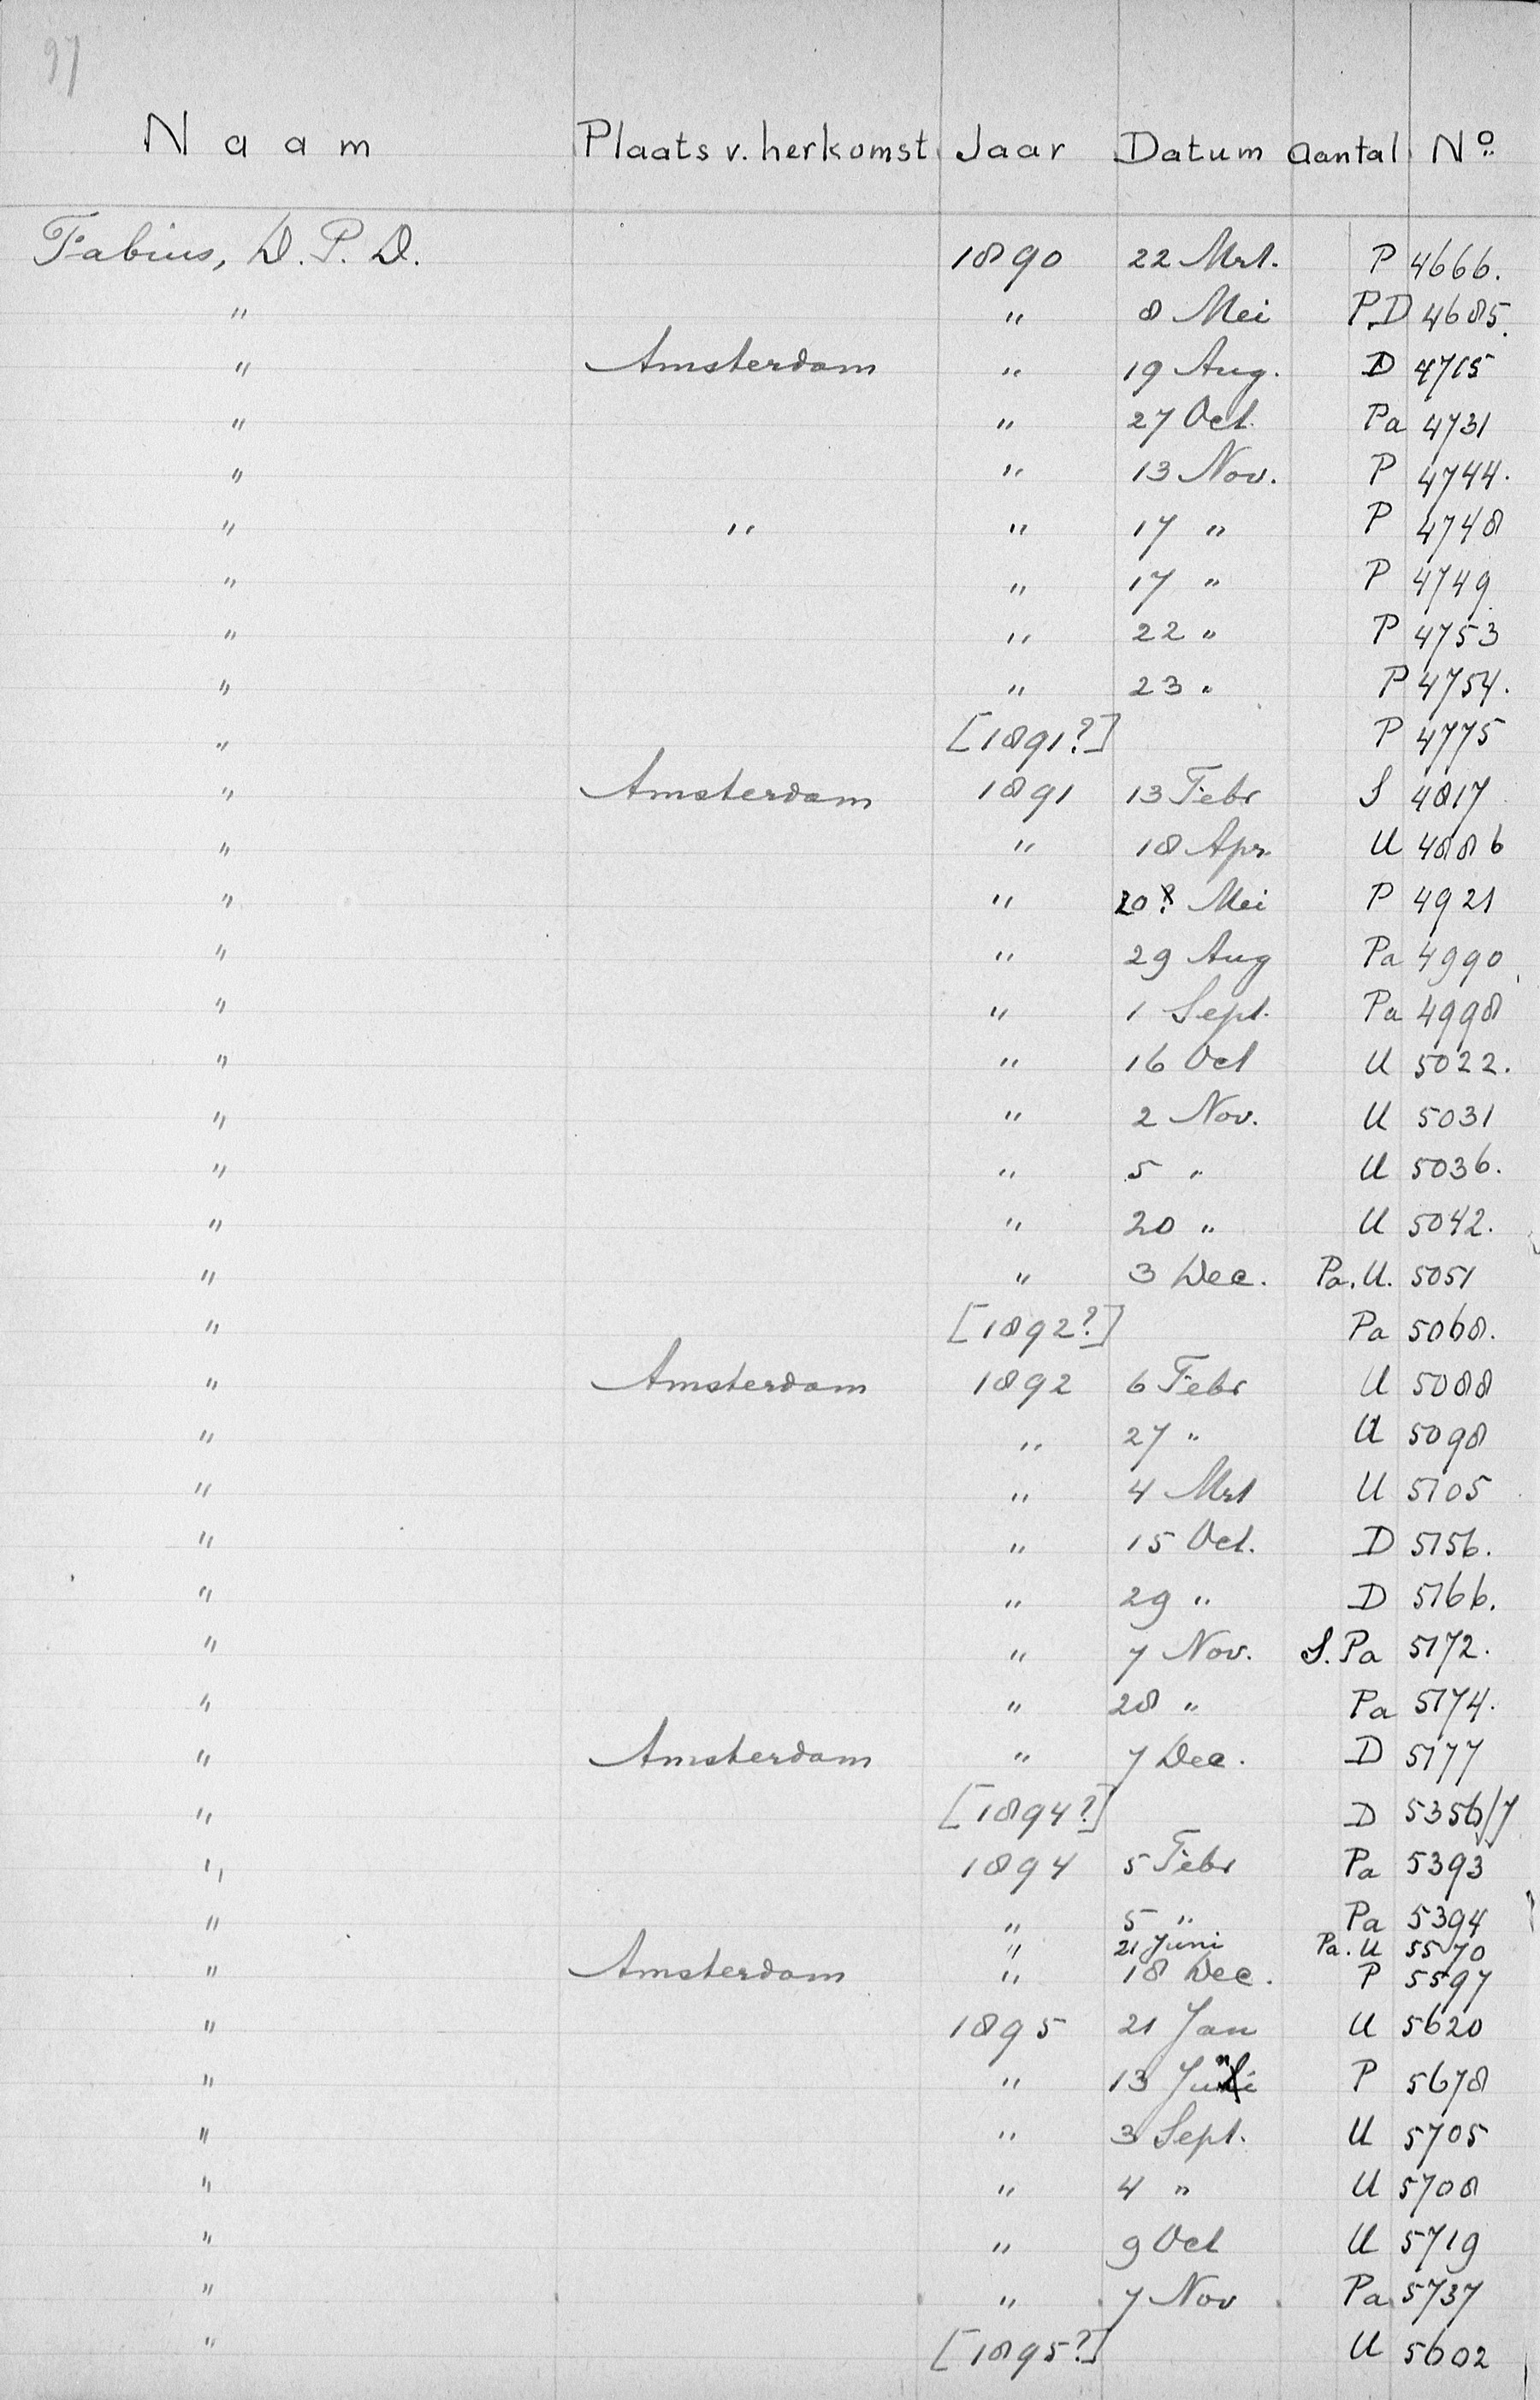 97
Naam Plaats v. herkomst Jaar Datum Aantal No.
Fabius, D. P. D. 1890 22 Mrt. P 4666.
" " 8 Mei P.D 4685.
" Amsterdam " 19 Aug. D 4715
" " 27 Oct. Pa 4731
" " 13 Nov. P 4744.
" " " 17 " P 4748
" " 17 " P 4749
" " 22 " P 4753
" " 23 " P 4754.
" [1891?] P 4775
" Amsterdam 1891 13 Febr S 4817
" " 18 Apr. U 4886
" " 20 Mei P 4921
" " 29 Aug Pa 4990
" " 1 Sept. Pa 4998
" " 16 Oct U 5022.
" " 2 Nov. U 5031
" " 5 " U 5036.
" " 20 " U 5042.
" " 3 Dec. Pa. U. 5051
" [1892?] Pa 5068.
" Amsterdam 1892 6 Febr U 5088
" " 27 " U 5098
" " 4 Mrt U 5105
" " 15 Oct. D 5156.
" " 29 " D 5166.
" " 7 Nov. S. Pa 5172.
" " 28 " Pa 5174.
" Amsterdam " 7 Dec. D 5177
" [1894?] D 5356/7
" 1894 5 Febr Pa 5393
" " 5 " Pa 5394
" 21 Juni Pa. U 5570
" Amsterdam " 18 Dec. P 5597
" 1895 21 Jan U 5620
" " 13 Juni P 5678
" " 3 Sept. U 5705
" " 4 " U 5708
" " 9 Oct U 5719
" " 7 Nov Pa 5737
" [1895?] U 5602